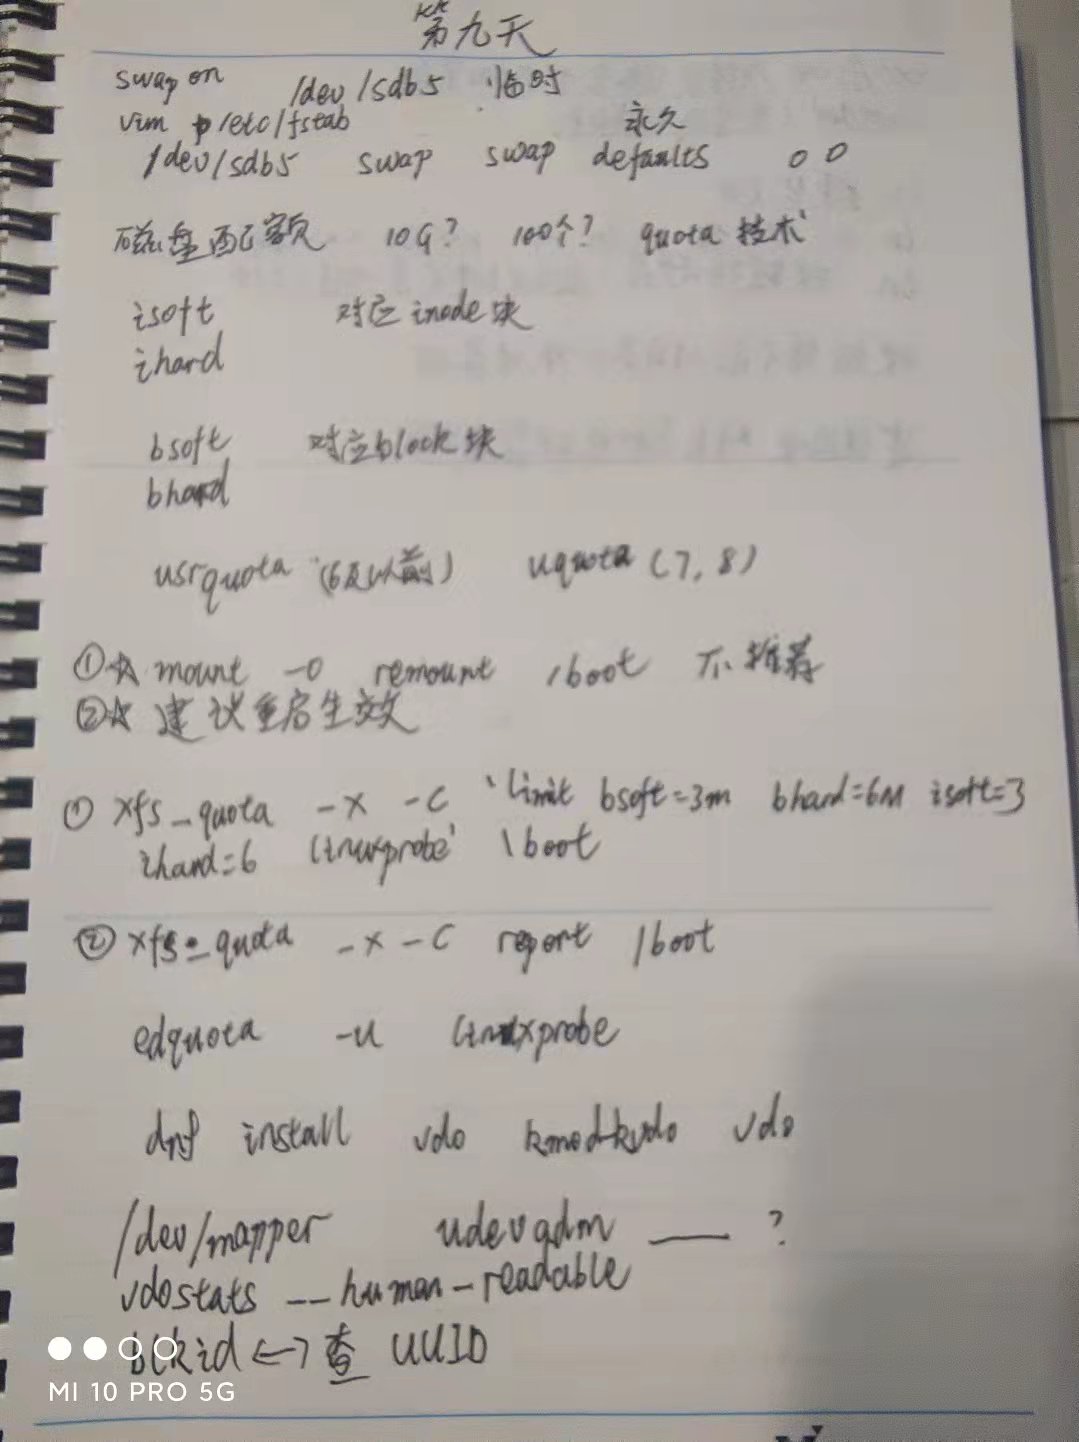 第九天
swap on /dev/sdb5 临时
vim /etc/fstab 永久
/dev/sdb5 swap swap defaults 0 0
磁盘配额 10G? 100个? quota 技术
isoft 对应 inode块
ihard
bsoft 对应block块
bhard
usrquota (6及以前) uquota (7, 8)
①☆ mount -o remount /boot 不推荐
②☆ 建议重启生效
① xfs_quota -x -c 'limit bsoft=3m bhard=6M isoft=3
ihard=6 linuxprobe' \boot
② xfs_quota -x -c report /boot
edquota -u linuxprobe
dnf install vdo kmod-kvdo vdo
/dev/mapper udevadm —— ?
vdostats --human-readable
blkid <-> 查 UUID
MI 10 PRO 5G